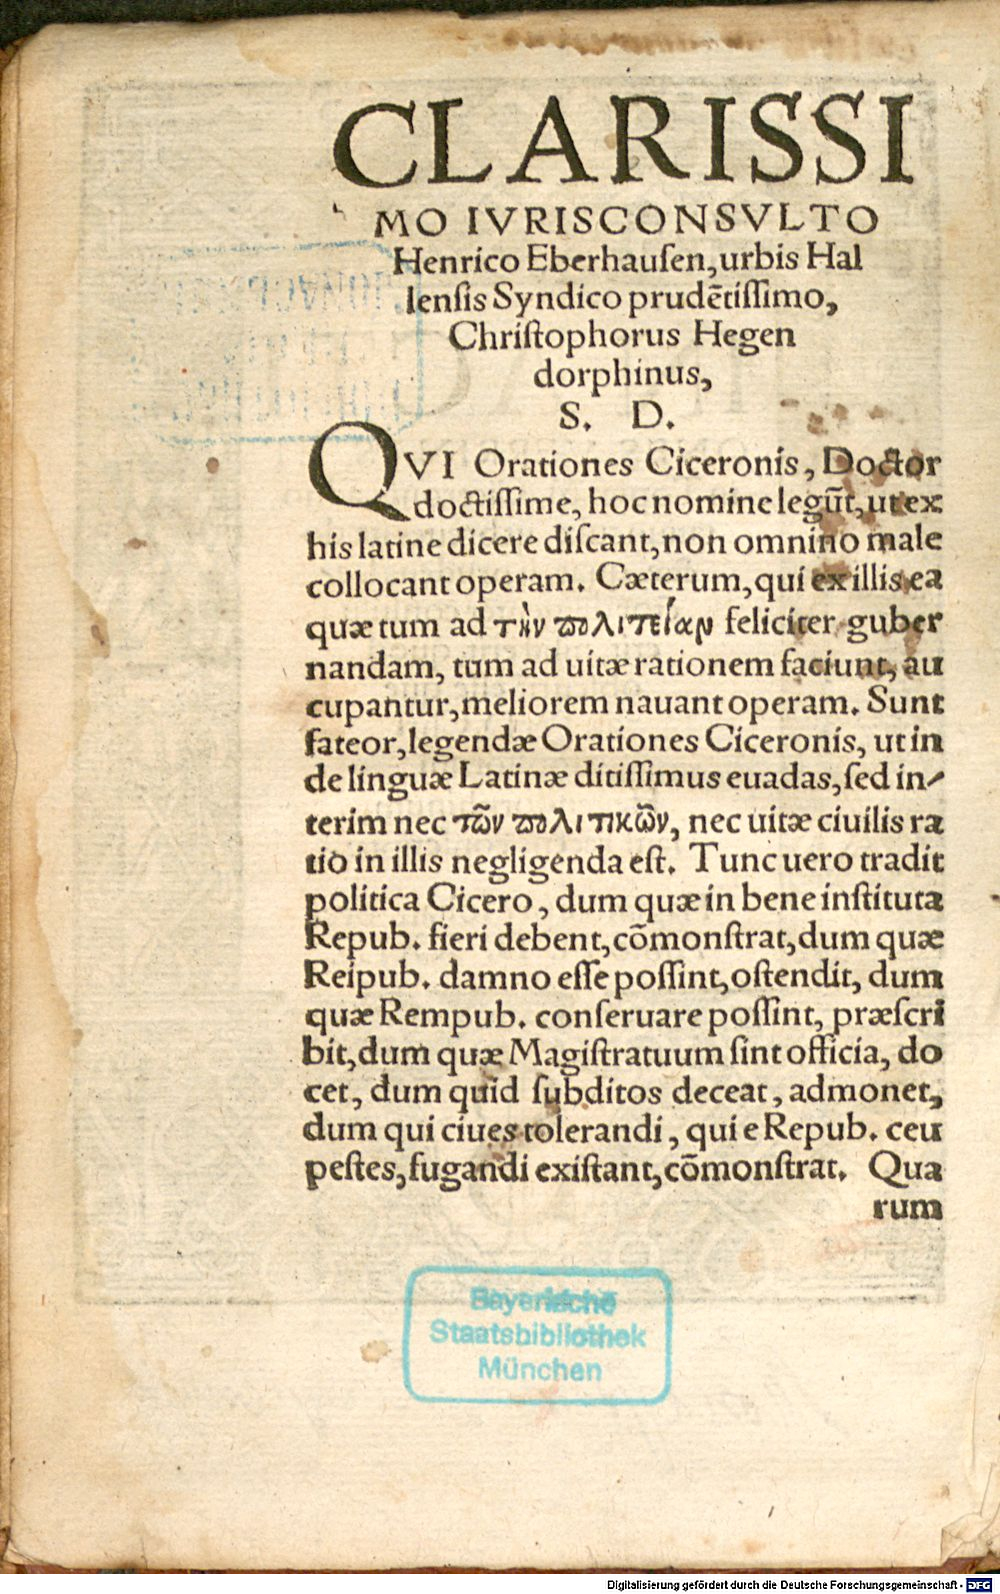 CLARISSI
MO IVRISCONSVLTO
Henrico Eberhauſen, urbis Hal
lenſis Syndico prudētiſſimo,
Chriſtophorus Hegen
dorphinus,
S. D.
QVI Orationes Ciceronis, Doctor
doctiſſime, hoc nomine legūt, ut ex
his latine dicere diſcant, non omnino male
collocant operam. Cæterum, qui ex illis ea
quæ tum ad τὴν πολιτείαν feliciter guber
nandam, tum ad uitæ rationem faciunt, au
cupantur, meliorem nauant operam. Sunt
fateor, legendæ Orationes Ciceronis, ut in
de linguæ Latinæ ditiſſimus euadas, ſed in-
terim nec τῶν πολιτικῶν, nec uitæ ciuilis ra
tio in illis negligenda eſt. Tunc uero tradit
politica Cicero, dum quæ in bene inſtituta
Repub. fieri debent, cōmonſtrat, dum quæ
Reipub. damno eſſe poſſint, oſtendit, dum
quæ Rempub. conſeruare poſſint, præſcri
bit, dum quæ Magiſtratuum ſint officia, do
cet, dum quid ſubditos deceat, admonet,
dum qui ciues tolerandi, qui e Repub. ceu
peſtes, fugandi exiſtant, cōmonſtrat. Qua
rum
Bayerische
Staatsbibliothek
München
Digitalisierung gefördert durch die Deutsche Forschungsgemeinschaft - DFG